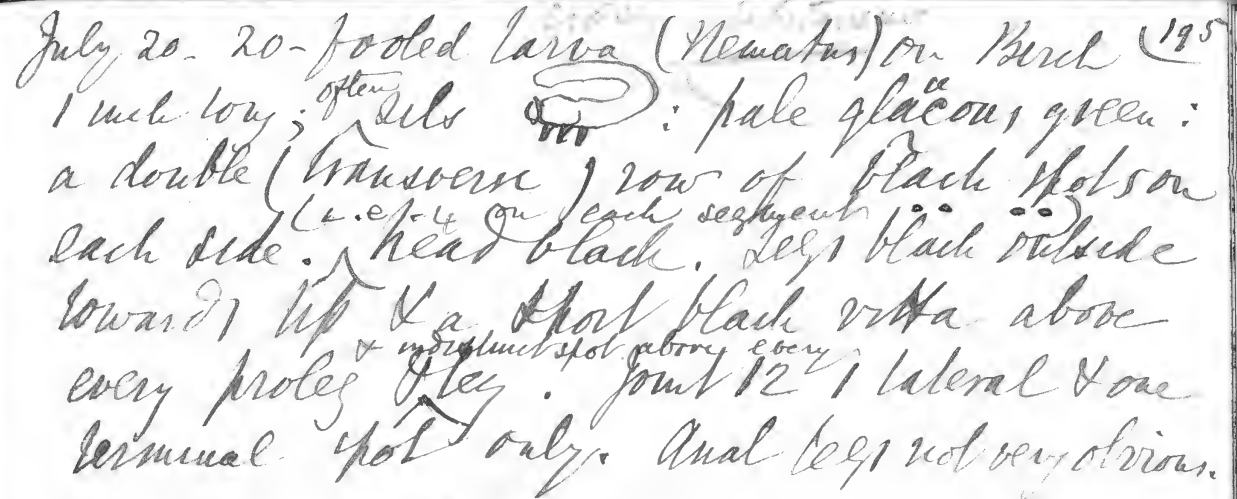 July 20 - 20-footed larva (Nematus) on Birch (195
1 inch long; often sits : pale glaucous green :
a double (transverse) row of black spots on
(i.e. 4 on each segment)
each side. Head black. Legs black outside
towards tip & a short black vitta above
& indistinct spot above every
every proleg & leg. Joint 12 1 lateral & one
terminal spot only. Anal legs not very obvious.